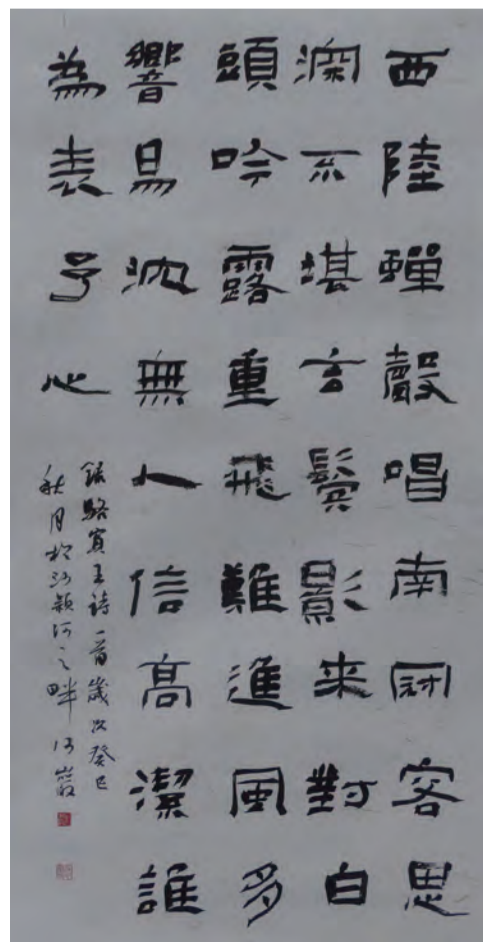 西陸蟬聲唱南冠客思
深不堪玄鬢影来對白
頭吟露重飛難進風多
響易沈無人信高潔誰
為表予心
錄駱賓王詩一首歲次癸巳
秋月於沙穎河之畔何巖